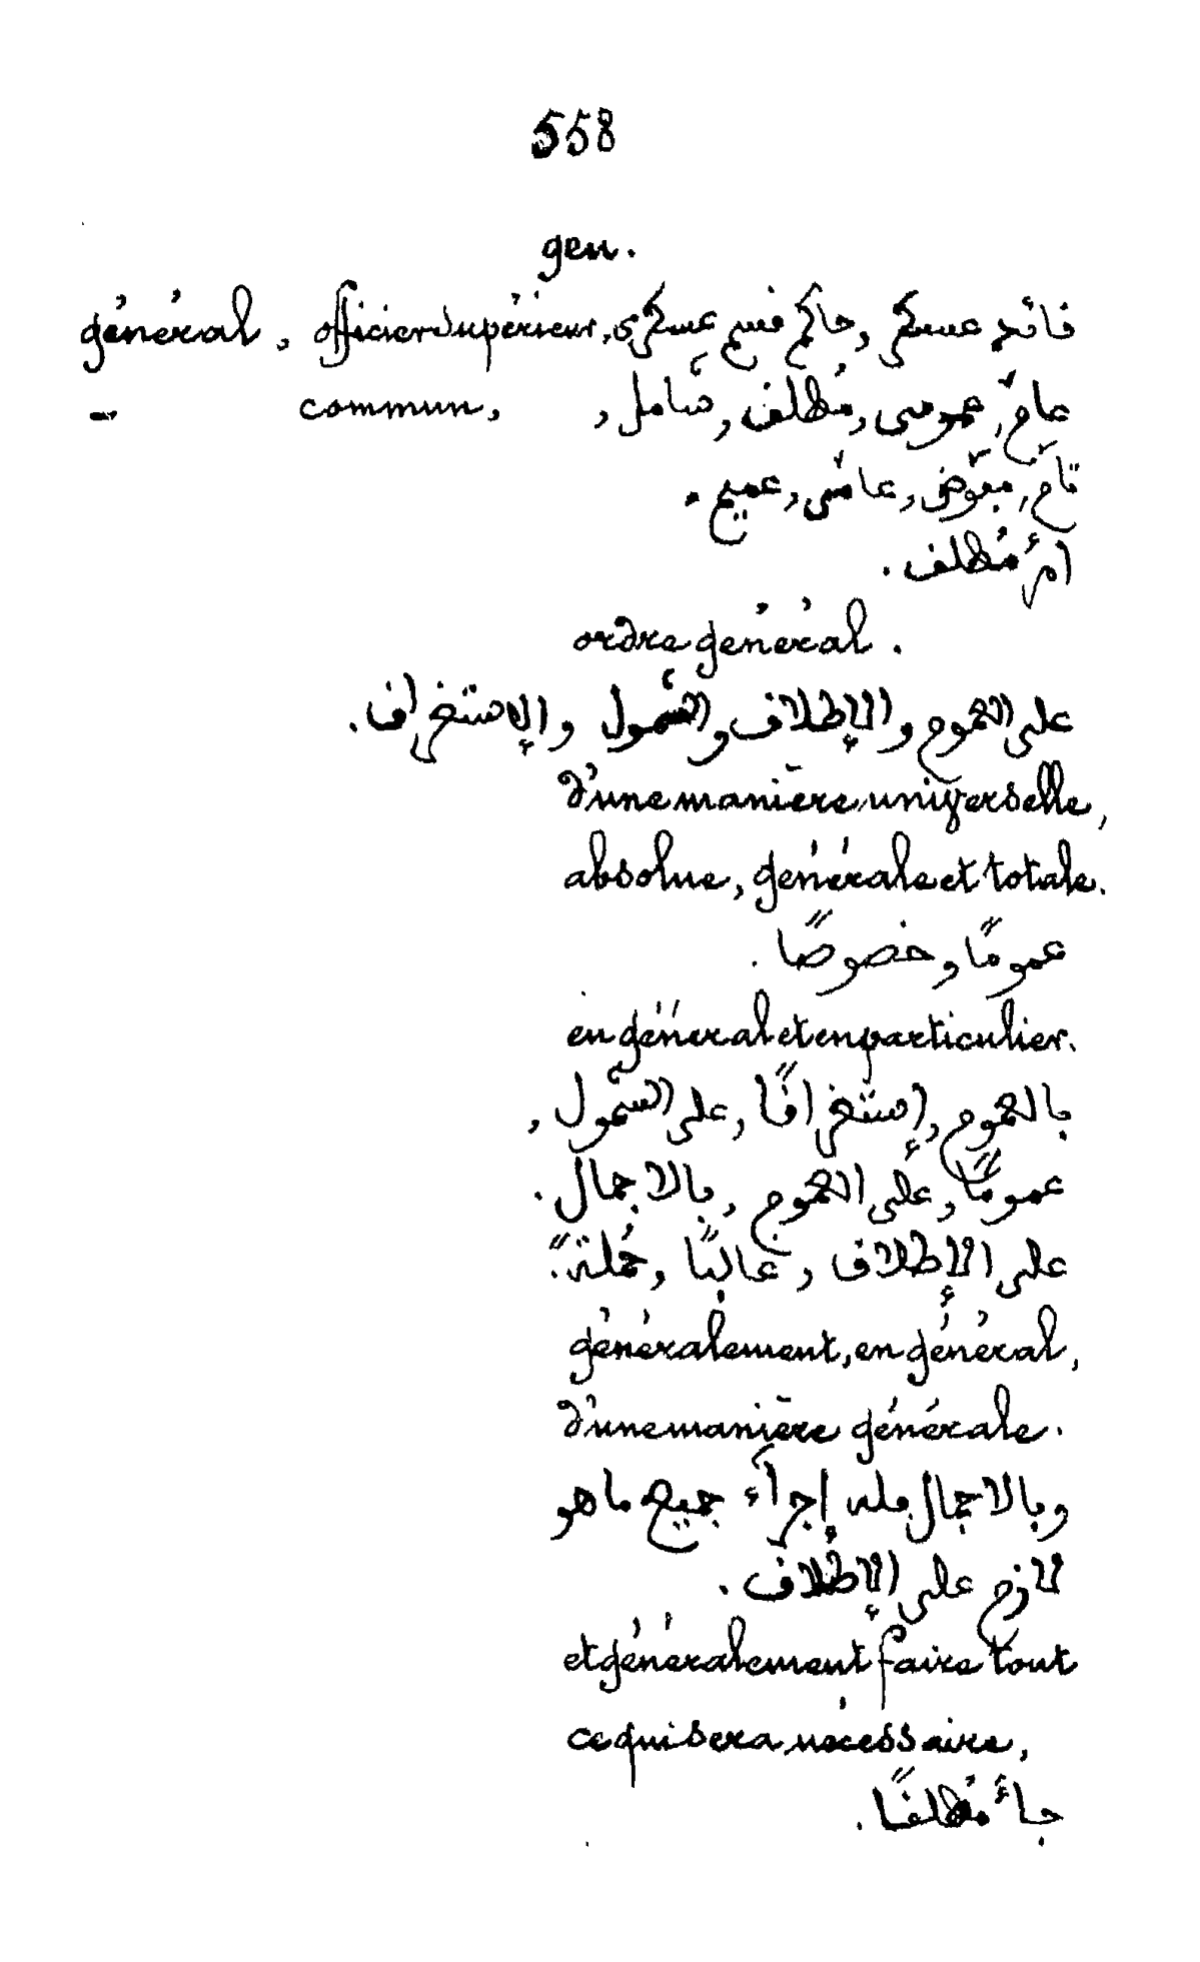 558
gen.
général, officier supérieur, قائد عسكر, حاكم قسم عسكرى
— commun, عامّ, عمومى, مُطلق, شامل,
تامّ, مفوّض, عاشى, عميم.
امرٌ مُطلق.
ordre général.
على العموم والإطلاق والشّمول والإستغراق.
d'une manière universelle,
absolue, générale et totale.
عمومًا وخصوصًا.
en général et en particulier.
بالعموم, إستغراقًا, على الشّمول,
عمومًا, على العموم, بالاجمال.
على الإطلاق, غالبًا, جُملةً.
généralement, en général,
d'une manière générale.
وبالاجمال فله إجرآء جميع ما هو
لازم على الإطلاق.
et généralement faire tout
ce qui sera nécessaire,
جاء مُطلقًا.